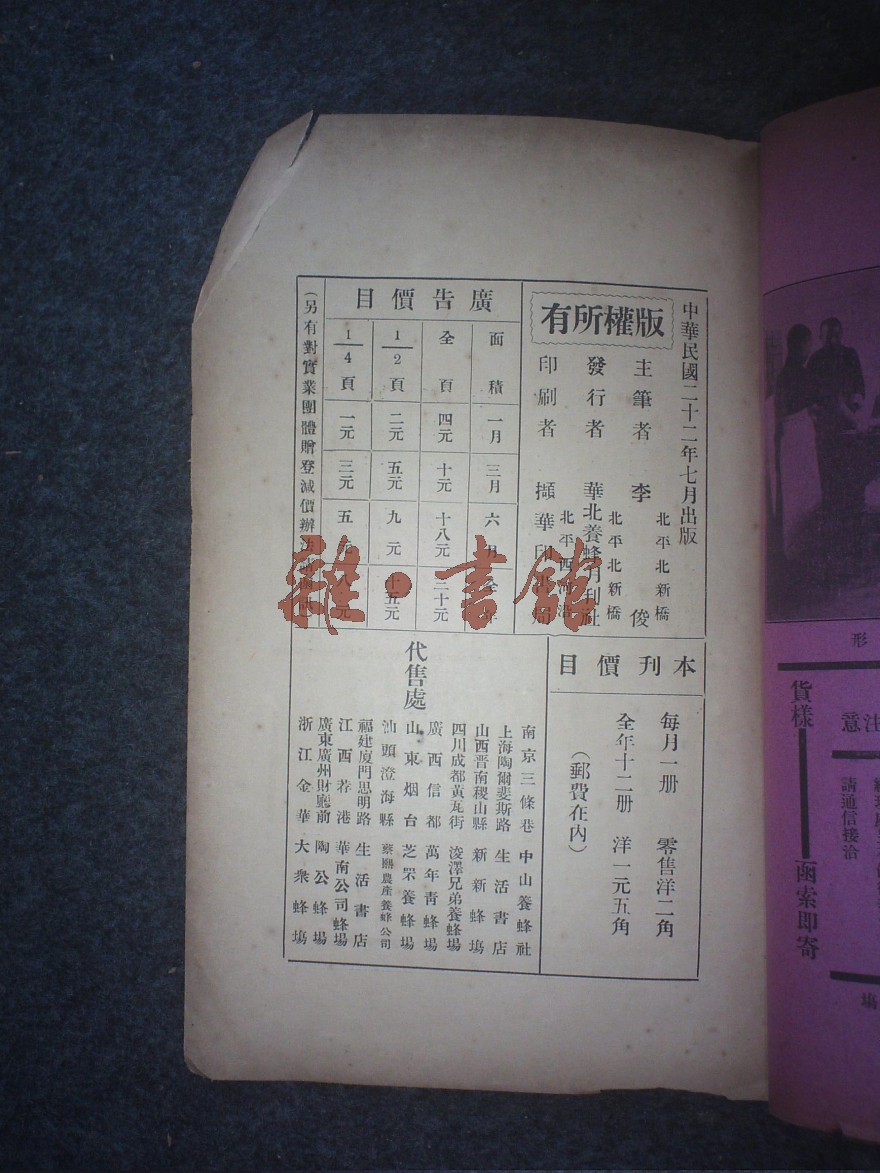 中華民國二十二年七月出版
版權所有
主筆者 李俊
北平北新橋
發行者 華北養蜂月刊社
北平北新橋
印刷者 擷華印書局
北平西河沿
廣告價目
面積 一月 三月 六月 全年
全頁 四元 十元 十八元 三十元
1/2頁 二元 五元 九元 十五元
1/4頁 一元 三元 五元 八元
(另有對實業團體贈登減價辦法
本刊價目
每月一册 零售洋二角
全年十二册 洋一元五角
(郵費在內)
代售處
南京三條巷 中山養蜂社
上海陶爾斐斯路 生活書店
山西晋南稷山縣 新新蜂塲
四川成都黃瓦街 浚澤兄弟養蜂塲
廣西信都 萬年靑蜂塲
山東烟台 芝罘養蜂塲
汕頭澄海縣 農產養蜂公司
福建廈門思明路 生活書店
江西荐港 華南公司蜂塲
廣東廣州財廳前 陶公蜂塲
浙江金華 大衆蜂塲
雜·書館
形
注意
貨樣
函索即寄
請通信接洽
塲